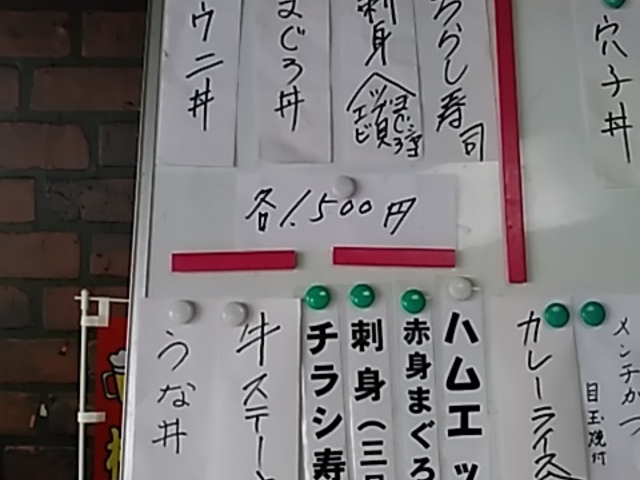 ウニ丼
まぐろ丼
刺身
ちらし寿司
穴子丼
各1.500円
うな丼
牛ステー
チラシ寿
刺身(三
赤身まぐろ
ハムエッ
カレーライス
メンチカツ
目玉焼付